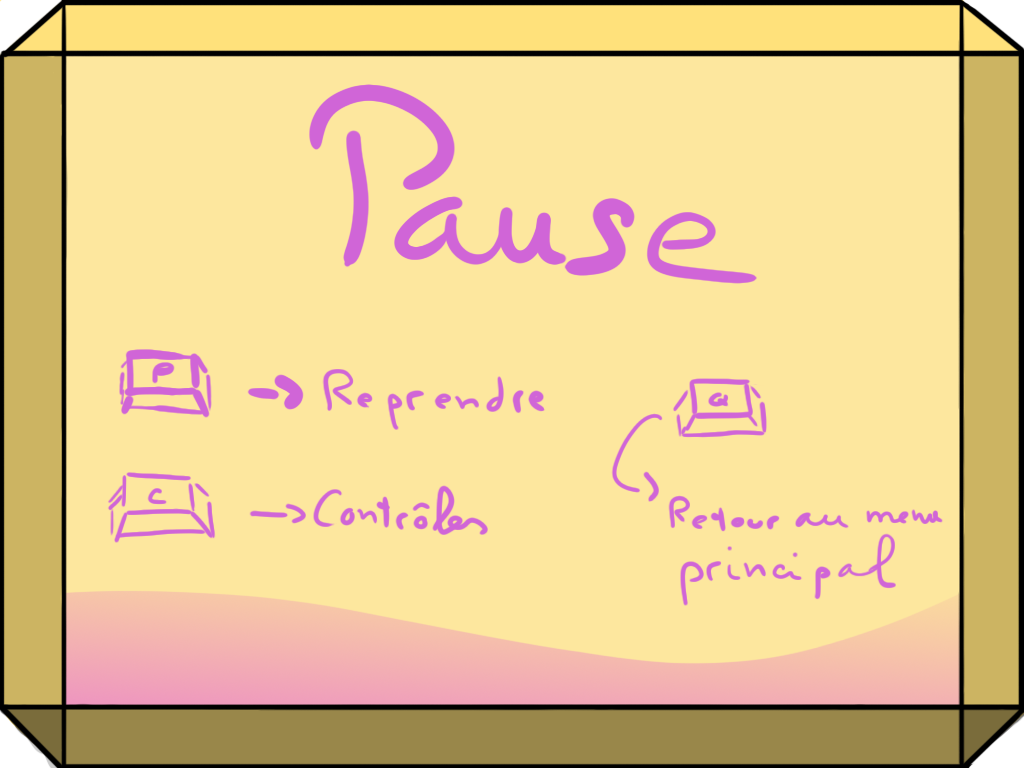 Pause
P → Reprendre
C → Contrôles
a
Retour au menu
principal